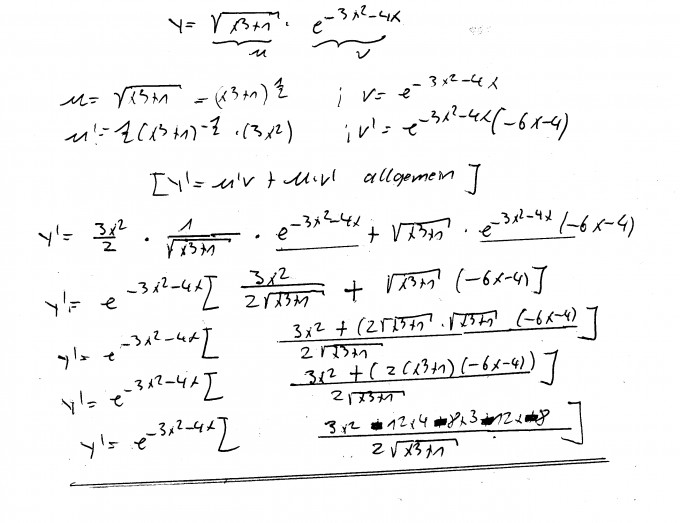 y = √(x³+1) · e^(-3x²-4x)
u v
u = √(x³+1) = (x³+1)^½ ; v = e^(-3x²-4x)
u' = ½(x³+1)^-½ · (3x²) ; v' = e^(-3x²-4x)(-6x-4)
[y' = u'v + u·v' allgemein]
y' = 3x²/2 · 1/√(x³+1) · e^(-3x²-4x) + √(x³+1) · e^(-3x²-4x)(-6x-4)
y' = e^(-3x²-4x)[3x²/(2√(x³+1)) + √(x³+1) (-6x-4)]
y' = e^(-3x²-4x)[(3x² + (2√(x³+1) · √(x³+1) (-6x-4))/(2√(x³+1))]
y' = e^(-3x²-4x)[(3x² + (2(x³+1)(-6x-4))/(2√(x³+1))]
y' = e^(-3x²-4x)[(3x² - 12x⁴ - 8x³ - 12x - 8)/(2√(x³+1))]